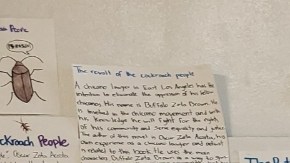 The revolt of the cockroach people
A chicano lawyer in East Los Angeles has the
intention to eliminate the oppression of his fellow
chicanos. His name is Buffalo Zeta Brown. He
is involved in the chicano movement and with
his knowledge he will fight for the rights
of his community and some equality and justice.
The author of this novel is Oscar Zeta Acosta, his
own experience as a chicano lawyer and activist
is related to the book. He uses the main
character Buffalo Zeta Brown as a way to
ckroach People
Oscar Zeta Acosta